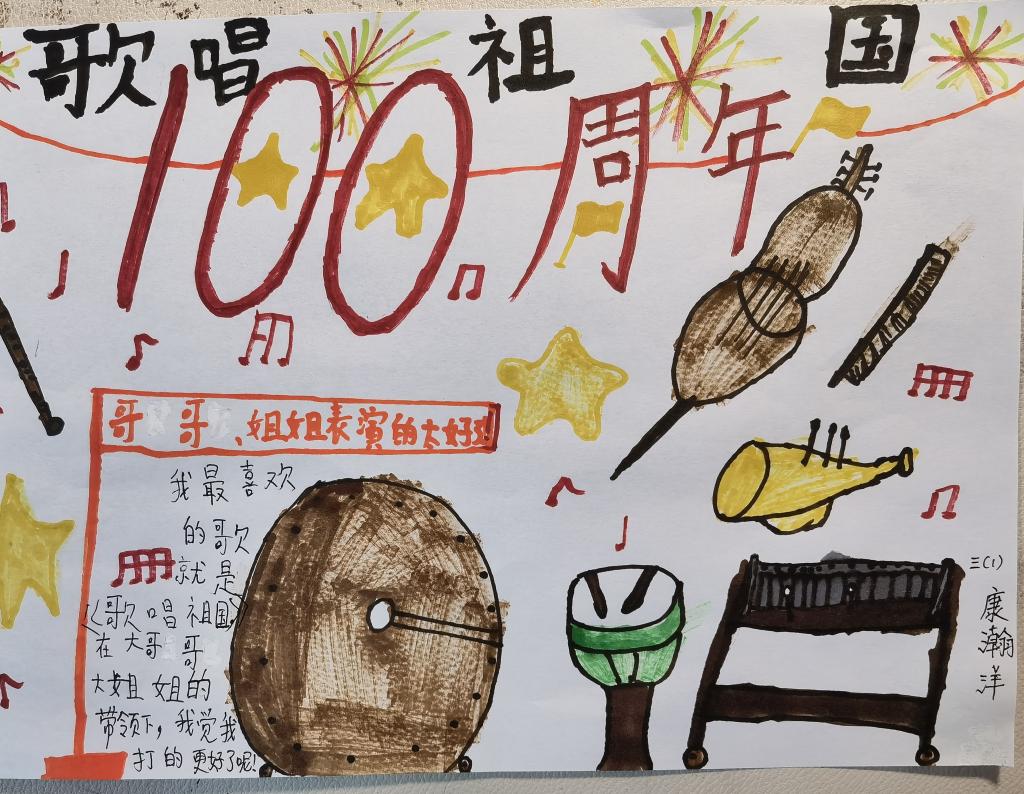 歌唱祖国
100周年
哥哥、姐姐表演的太好了
我最喜欢
的歌
就是
《歌唱祖国》
在大哥哥
大姐姐的
带领下，我觉我
打的更好了呢！
三(1)
康瀚洋